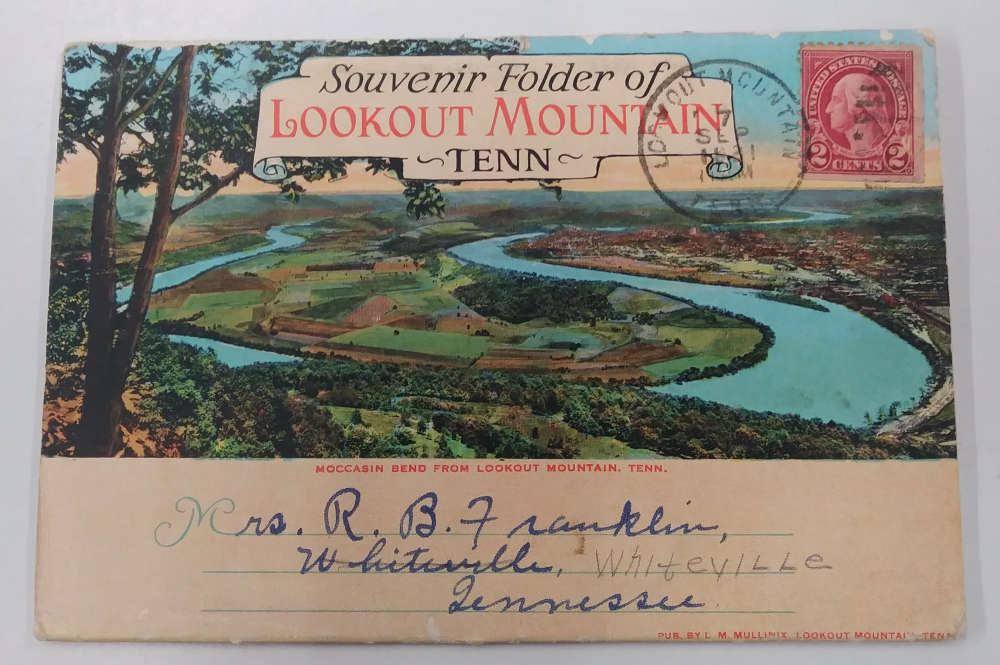 Souvenir Folder of
LOOKOUT MOUNTAIN
~TENN~
LOOKOUT MOUNTAIN
7
SEP
TENN
UNITED STATES POSTAGE
2 CENTS 2
MOCCASIN BEND FROM LOOKOUT MOUNTAIN, TENN.
Mrs. R. B. Franklin,
Whiteville, WhitevILLe
Tennessee
PUB. BY L. M. MULLINIX, LOOKOUT MOUNTAIN, TENN.